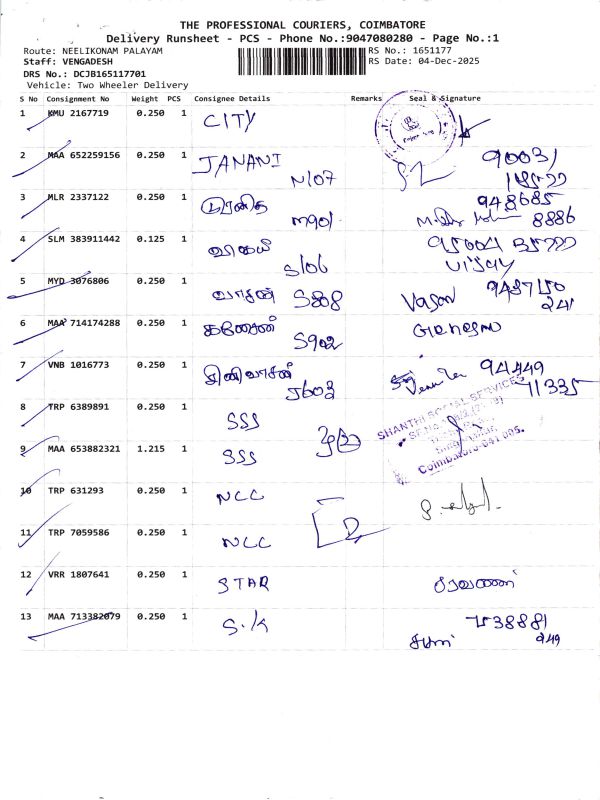 THE PROFESSIONAL COURIERS, COIMBATORE
Delivery Runsheet - PCS - Phone No.:9047080280 - Page No.:1
Route: NEELIKONAM PALAYAM
RS No.: 1651177
Staff: VENGADESH
RS Date: 04-Dec-2025
DRS No.: DCJB165117701
Vehicle: Two Wheeler Delivery
S No Consignment No Weight PCS Consignee Details Remarks Seal & Signature
1 KMU 2167719 0.250 1 CITY
2 MAA 652259156 0.250 1 JANANI N107 90031
3 MLR 2337122 0.250 1 M901 948685 8886
4 SLM 383911442 0.125 1 S106 VIJAY
5 MYD 3076806 0.250 1 வாசன் S808 Vasan 241
6 MAA 714174288 0.250 1 கணேசன் S902 Ganesan
7 VNB 1016773 0.250 1 J603 94449 71335
8 TRP 6389891 0.250 1 SSS
SHANTHI SOCIAL SERVICES
9 MAA 653882321 1.215 1 SSS
Coimbatore-641 005.
10 TRP 631293 0.250 1 NCC
11 TRP 7059586 0.250 1 NCC
12 VRR 1807641 0.250 1 STAR சரவணன்
13 MAA 713382079 0.250 1 S.K 249